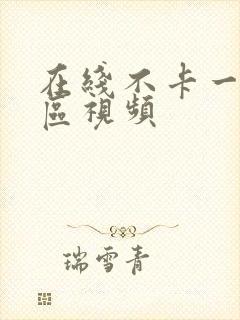 在綫不卡一
區視頻
瑞雪青